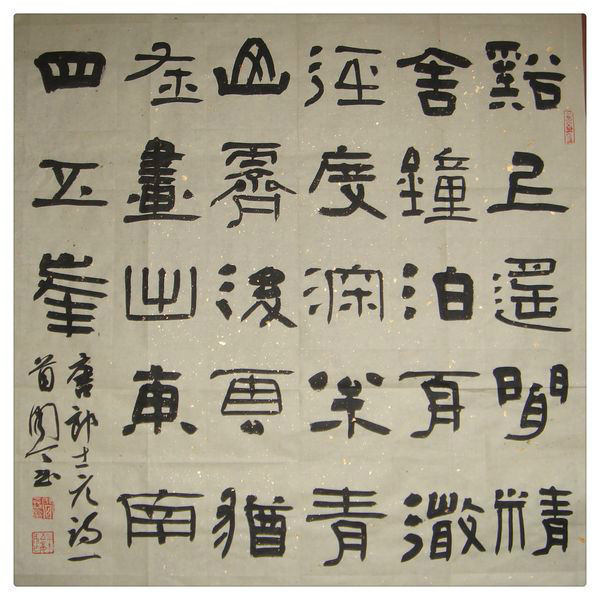 谿上遥聞精
舍鐘泊舟微
徑度深枀青
山霽後雲猶
在畫出東南
四五峯
唐郎士元詩一
首